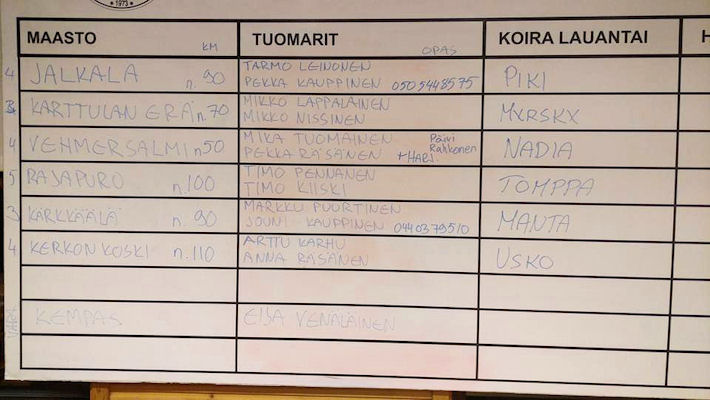 1973
MAASTO KM TUOMARIT OPAS KOIRA LAUANTAI H
4 JALKALA n.90 TARMO LEINONEN PIKI
PEKKA KAUPPINEN 050 5448575
KARTTULAN ERÄ n.70 MIKKO LAPPALAINEN MYRSKY
MIKKO NISSINEN
4 VEHMERSALMI n.50 MIKA TUOMAINEN Päivi NADIA
PEKKA RÄSÄNEN +HARJ. Rahkonen
5 RAJAPURO n.100 TIMO PENNANEN TOMPPA
TIMO KIISKI
3 KÄRKKÄÄLÄ n.90 MARKKU PUURTINEN MANTA
JOUNI KAUPPINEN 0440379510
4 KERKONKOSKI n.110 ARTTU KARHU USKO
ANNA RÄSÄNEN
VARA KEMPAS EIJA VENÄLÄINEN